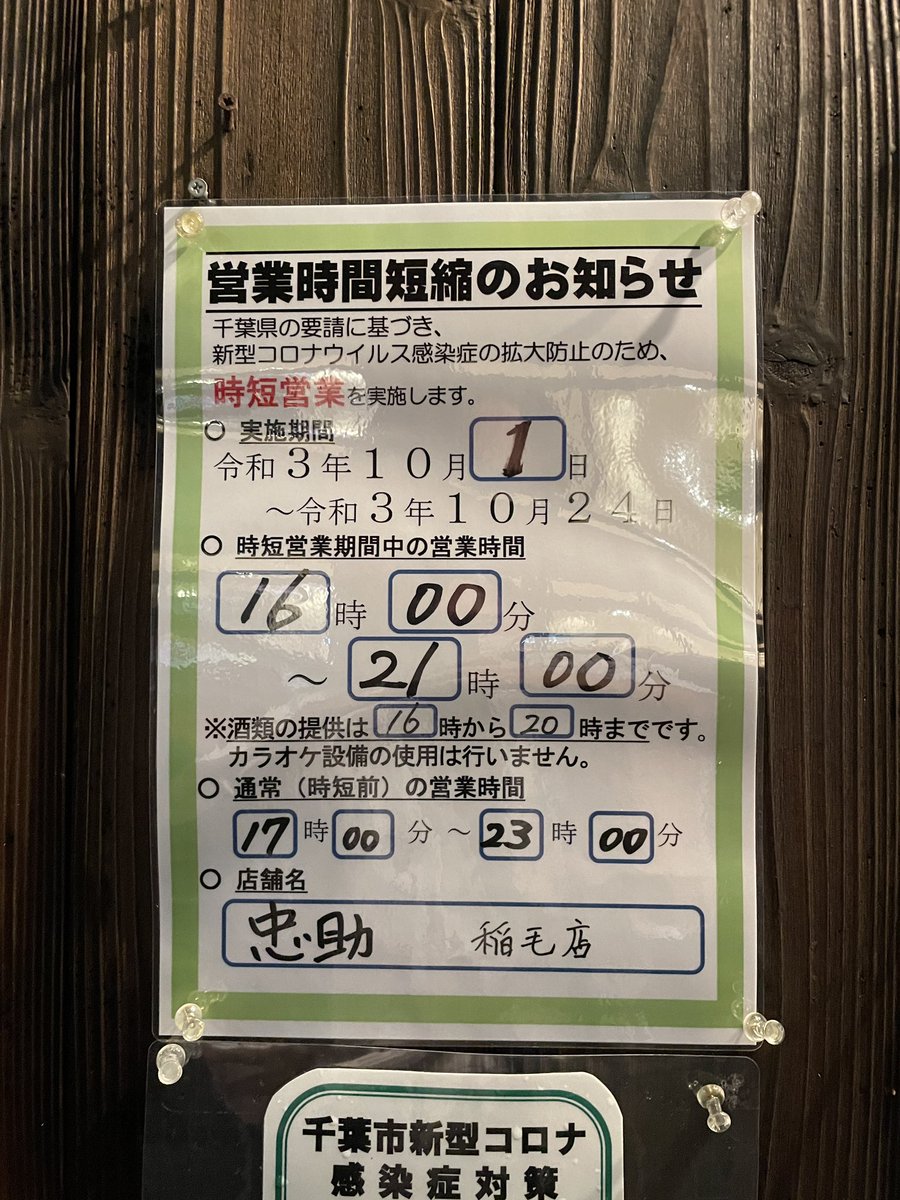 営業時間短縮のお知らせ
千葉県の要請に基づき、
新型コロナウイルス感染症の拡大防止のため、
時短営業を実施します。
○ 実施期間
令和３年１０月1日
～令和３年１０月２４日
○ 時短営業期間中の営業時間
16時 00分
～ 21時 00分
※酒類の提供は16時から20時までです。
カラオケ設備の使用は行いません。
○ 通常（時短前）の営業時間
17時00分～23時00分
○ 店舗名
忠助 稲毛店
千葉市新型コロナ
感染症対策